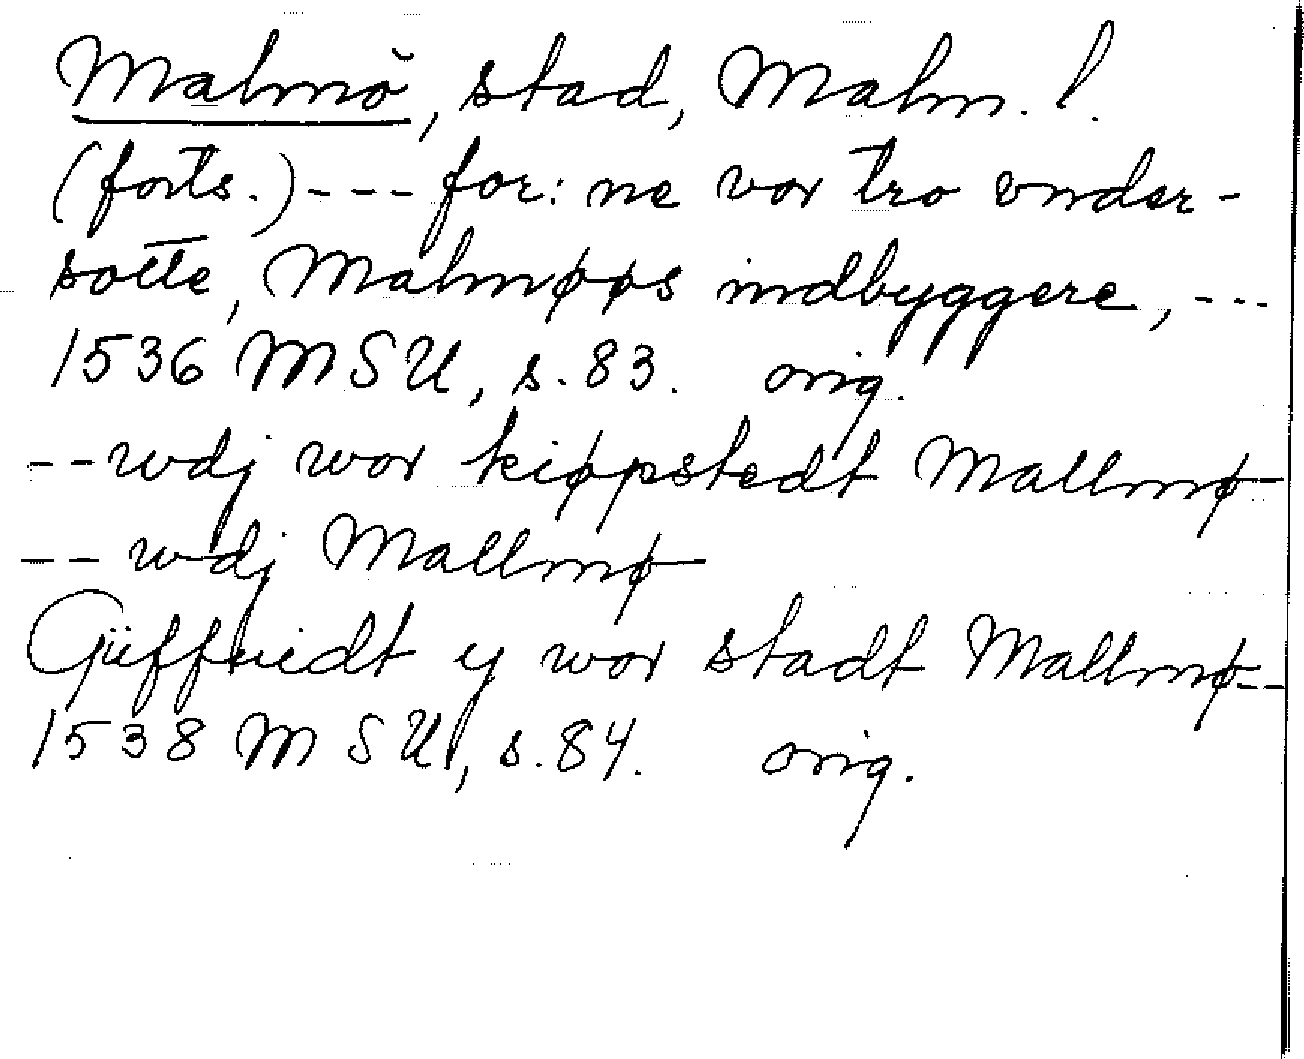 Malmö, stad, Malm. l.
(forts.) --- for: ne vor tro vnder-
sotte, Malmøøs indbyggere, ---
1536 MSU, s. 83. orig.
-- wdj wor kiøpstedt Mallmø-
-- wdj Mallmø
Giiffuidt y wor stadt Mallmø--
1538 MSU, s. 84. orig.